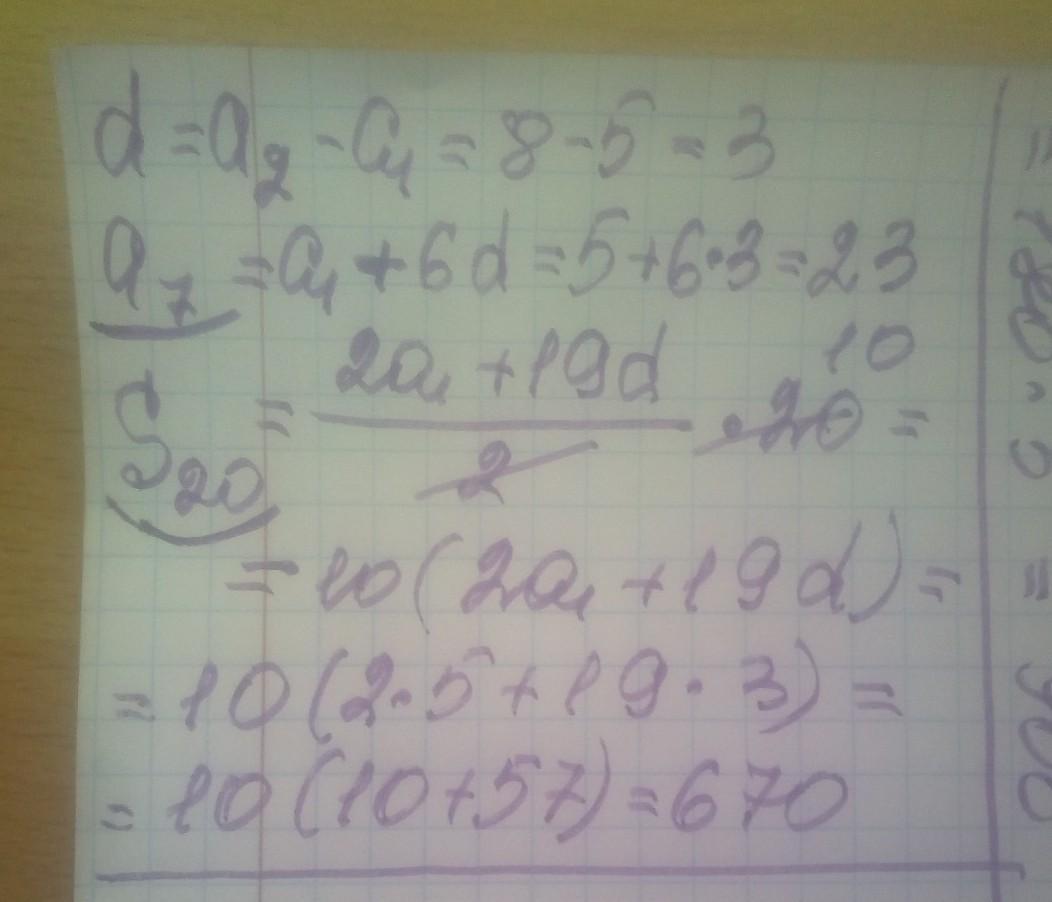 d = a₂ - a₁ = 8 - 5 = 3
a₇ = a₁ + 6d = 5 + 6·3 = 23
S₂₀ = (2a₁ + 19d)/2 · 20 =
10
= 10(2a₁ + 19d) =
= 10(2·5 + 19·3) =
= 10(10+57) = 670